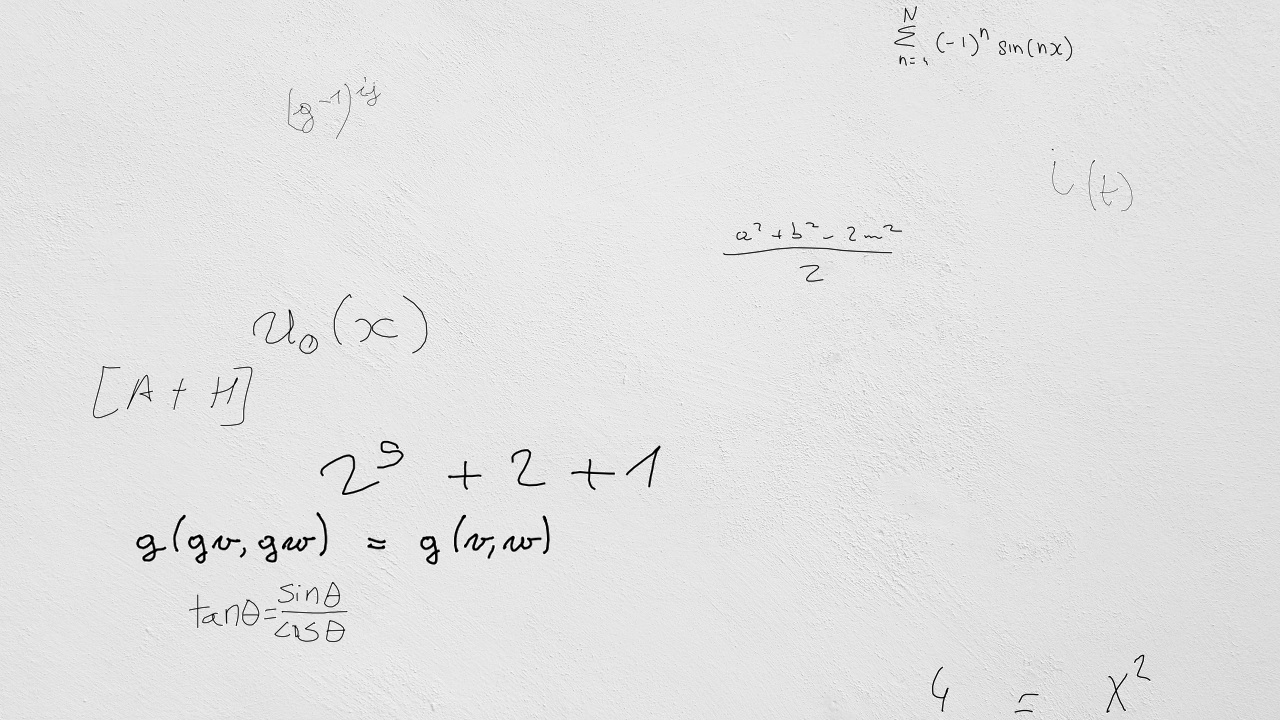 \sum_{n=1}^{N} (-1)^n sin(nx)
(g^{-1})^{ij}
i(t)
\frac{a^2+b^2-2m^2}{2}
u_0(x)
[A + H]
2^9 + 2 + 1
g(gv, gw) = g(v, w)
tanθ = \frac{sinθ}{cosθ}
4 = x^2